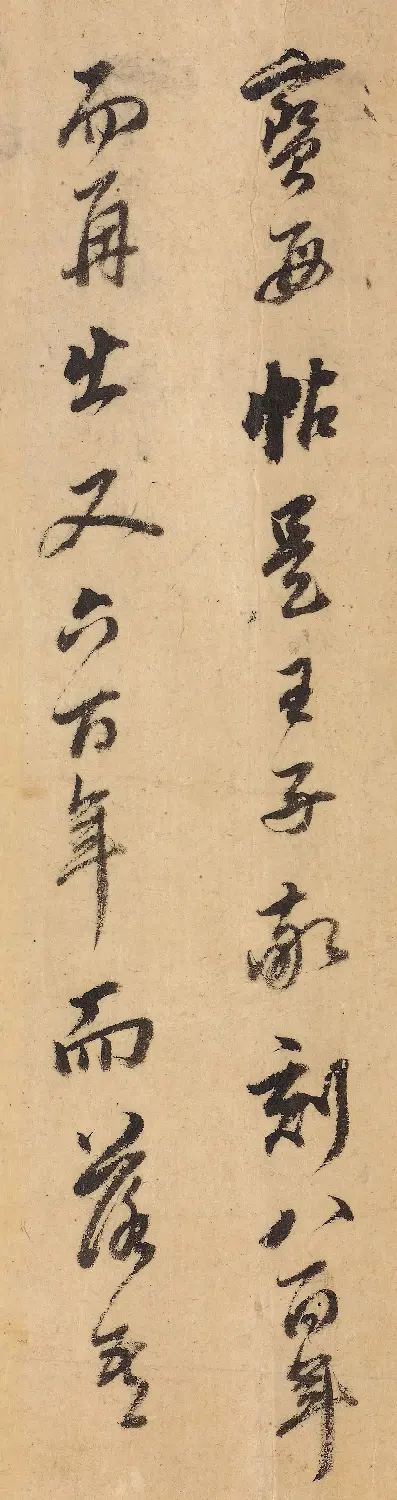 寶母帖是王子敬刻八百年
而再出又六百年而落吾